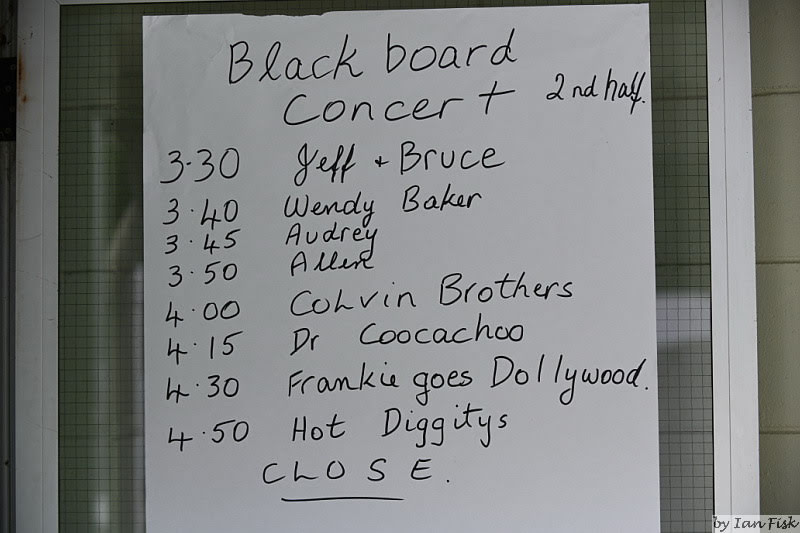 Black board
Concert 2nd half.
3.30 Jeff + Bruce
3.40 Wendy Baker
3.45 Audrey
3.50 Allen
4.00 Colvin Brothers
4.15 Dr Coocachoo
4.30 Frankie goes Dollywood.
4.50 Hot Diggitys
CLOSE.
by Ian Fisk